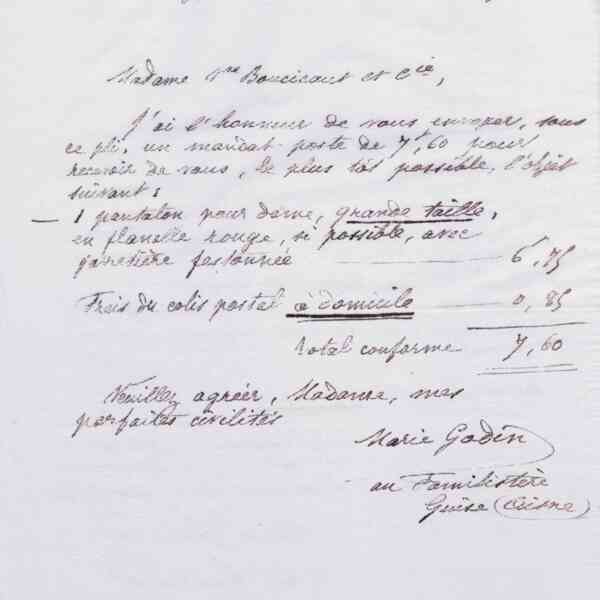 Madame Vve Boucicaut et Cie,
J'ai l'honneur de vous envoyer, sous
ce pli, un mandat-poste de 7f,60 pour
recevoir de vous, le plus tôt possible, l'objet
suivant :
— 1 pantalon pour dame, grande taille,
en flanelle rouge, si possible, avec
jarretière festonnée — 6,75
Frais du colis postal à domicile — 0,85
Total conforme 7,60
Veuillez agréer, Madame, mes
parfaites civilités
Marie Godin
au Familistère
Guise (Aisne)